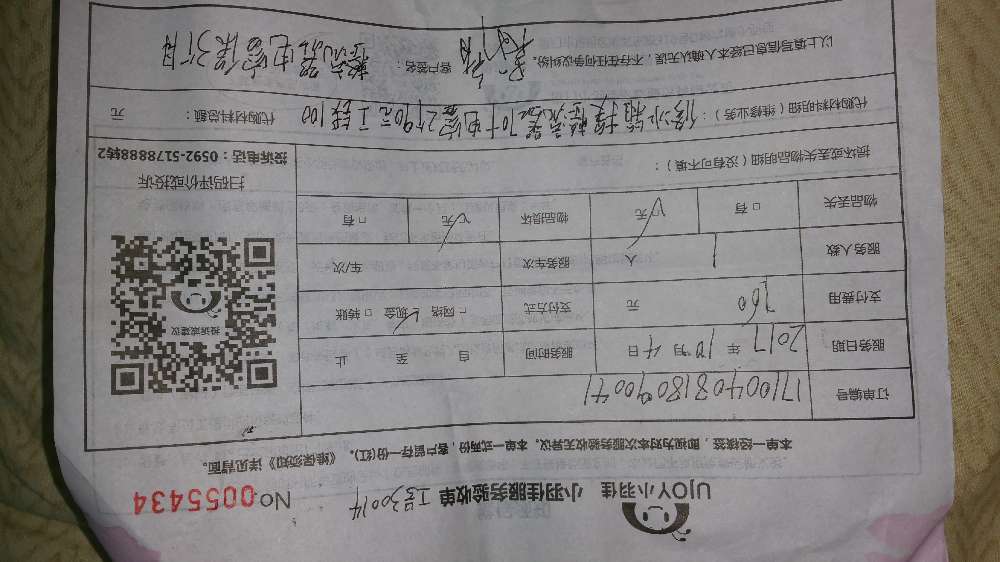 UJOY小羽佳 小羽佳服务验收单 工号30014 No 0055434
本单一经核签，即视为对本次服务验收无异议。本单一式两份，客户留存一份(红)。《维保须知》详见背面。
订单编号 17100408180990041
服务日期 2017年10月4日 服务时间 自 至 止
支付费用 260元 支付方式 □网络 ✓现金 □转账
服务人数 1人 服务车次 车/次
物品丢失 □有 ✓无 物品损坏 ✓无 □有
投诉或建议
扫码评价或投诉
投诉电话：0592-5178888转2
损坏或丢失物品明细（没有可不填）：
代购材料明细（维修业务）：修水 70个电容2个90元工钱100 代购材料总额： 元
以上填写信息已经本人确认无误，不存在任何争议纠纷。 客户签名： 电容保3个月